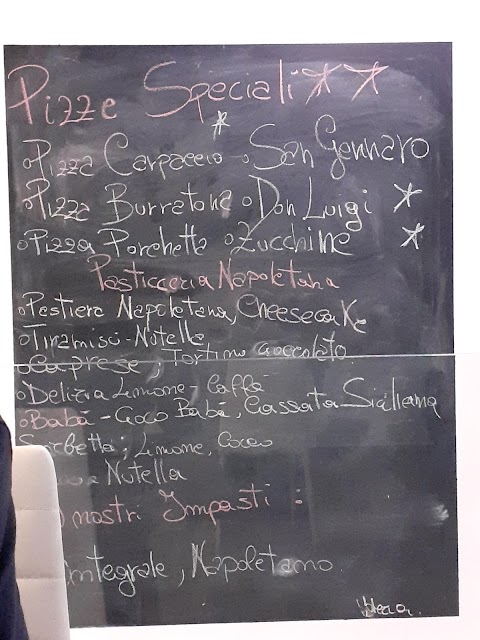 Pizze Speciali
o Pizza Carpaccio o San Gennaro
o Pizza Burratona o Don Luigi
o Pizza Porchetta o Zucchine
Pasticceria Napoletana
o Pastiera Napoletana, Cheesecake
o Tiramisù - Nutella
o Caprese, Tortino Cioccolato
o Delizia Limone - Caffè
o Babà - Cioco Babà, Cassata Siciliana
Sorbetto; Limone, Cocco
Nutella
nostri Impasti :
integrale, Napoletano.